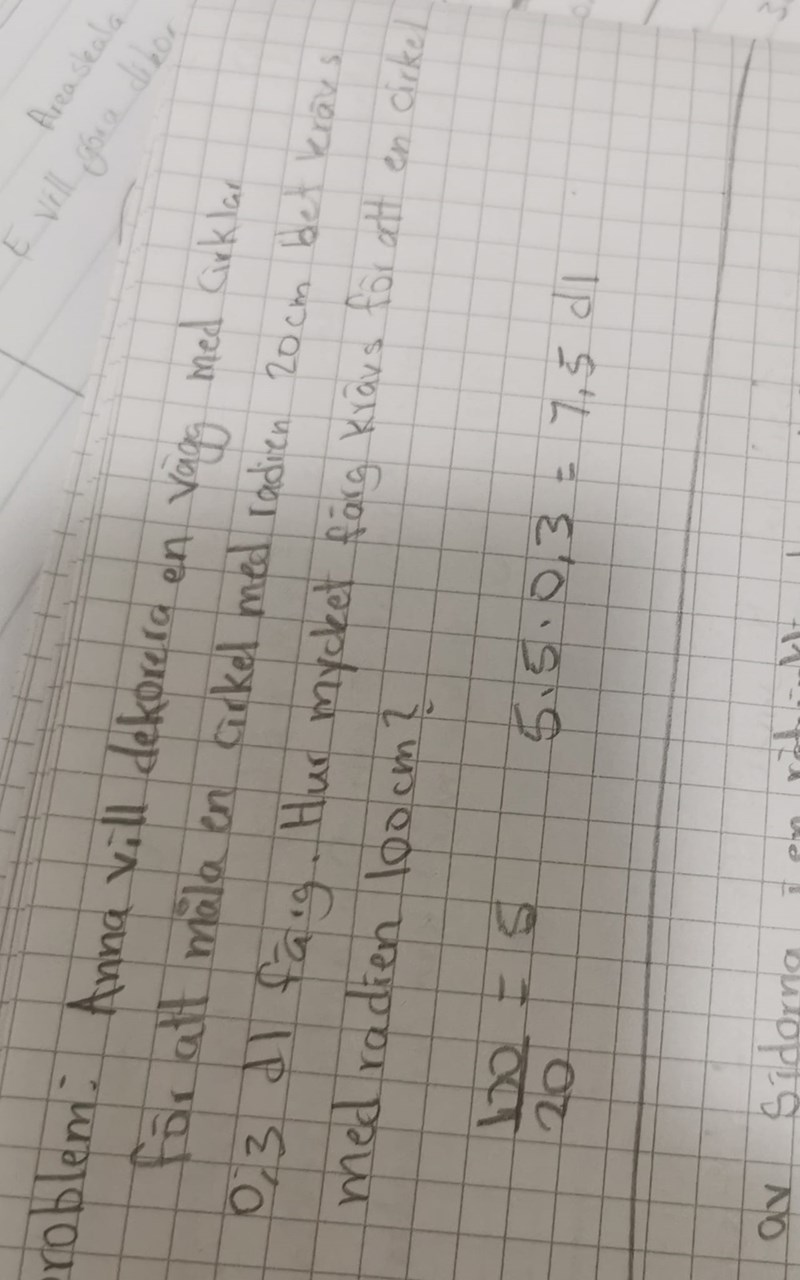 Areaskala
E vill göra
roblem: Anna vill dekorera en vägg med cirklar
för att måla en cirkel med radien 20cm det krävs
0,3 dl färg. Hur mycket färg krävs för att en cirkel
med radien 100cm?
100/20 = 5 5.5.0,3 = 7,5 dl
av Sidorna i en